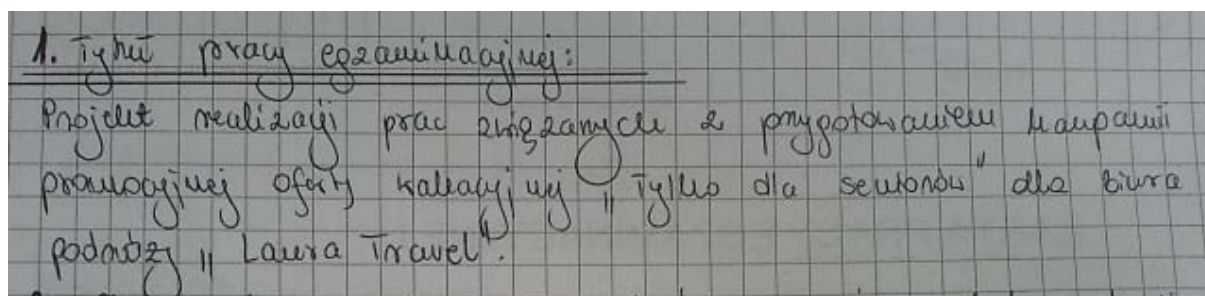 1. Tytuł pracy egzaminacyjnej:
Projekt realizacji prac związanych z przygotowaniem kampanii
promocyjnej oferty wakacyjnej „Tylko dla seniorów" dla biura
podróży „Laura Travel".